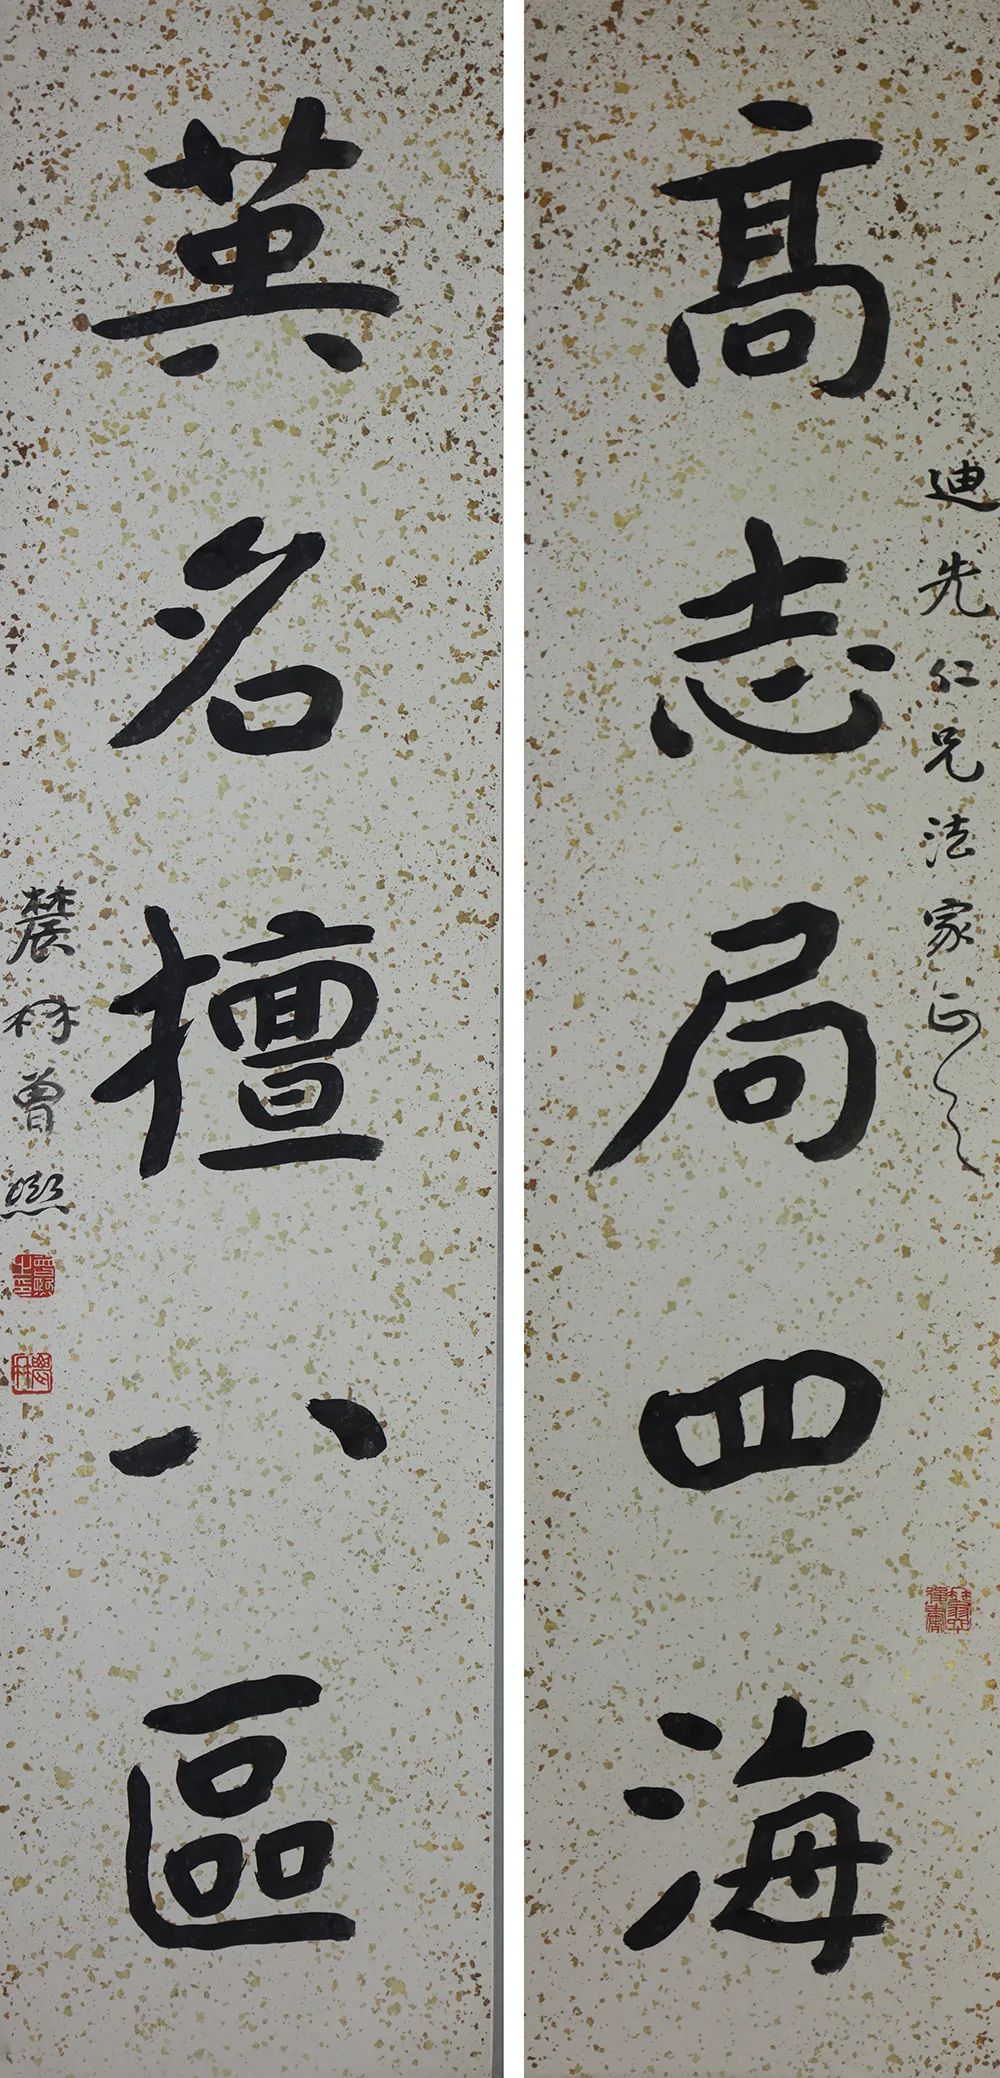 高志局四海
迪先仁兄法家正之
英名擅八區
農髯曾熙